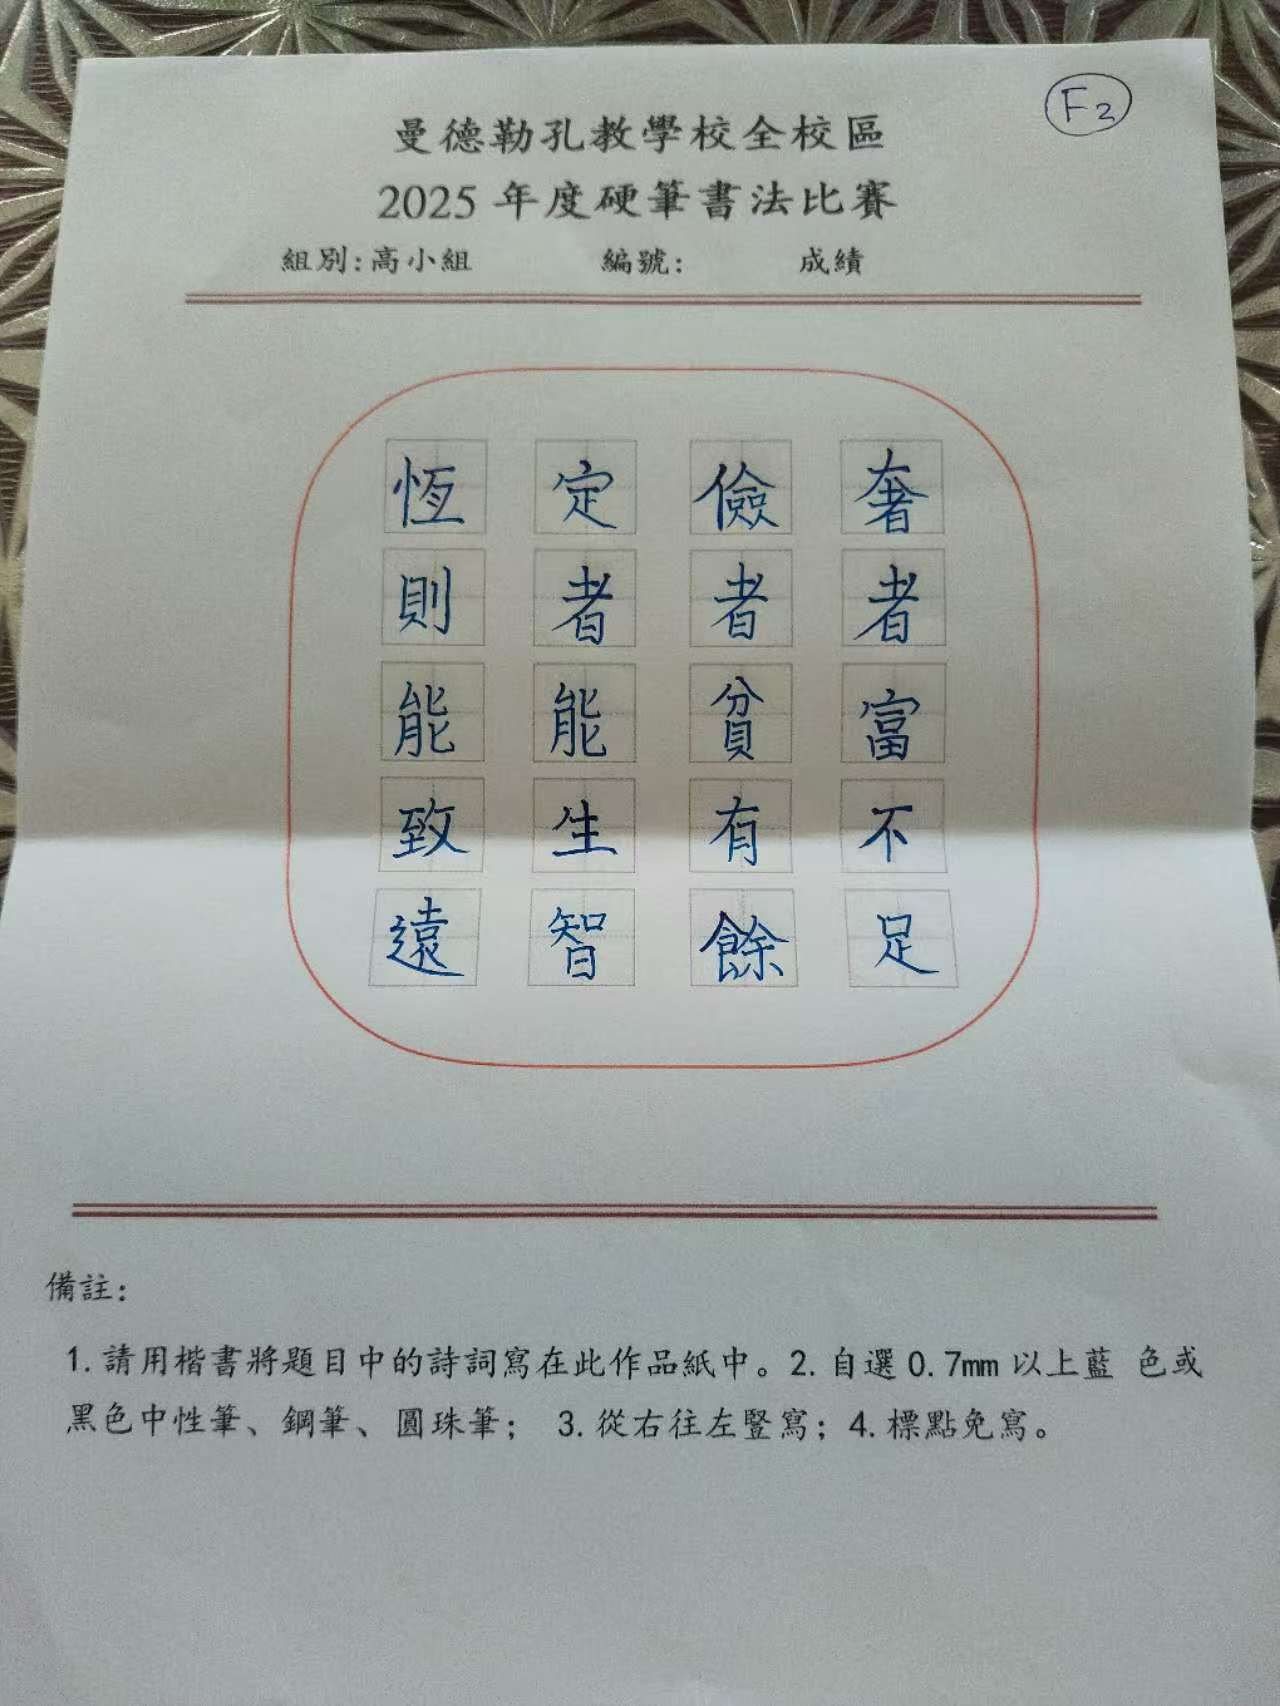 F2
曼德勒孔教學校全校區
2025 年度硬筆書法比賽
組別:高小組 編號: 成績
奢者富不足
儉者貧有餘
定者能生智
恆則能致遠
備註:
1.請用楷書將題目中的詩詞寫在此作品紙中。2.自選0.7mm 以上藍 色或
黑色中性筆、鋼筆、圓珠筆; 3.從右往左豎寫;4.標點免寫。